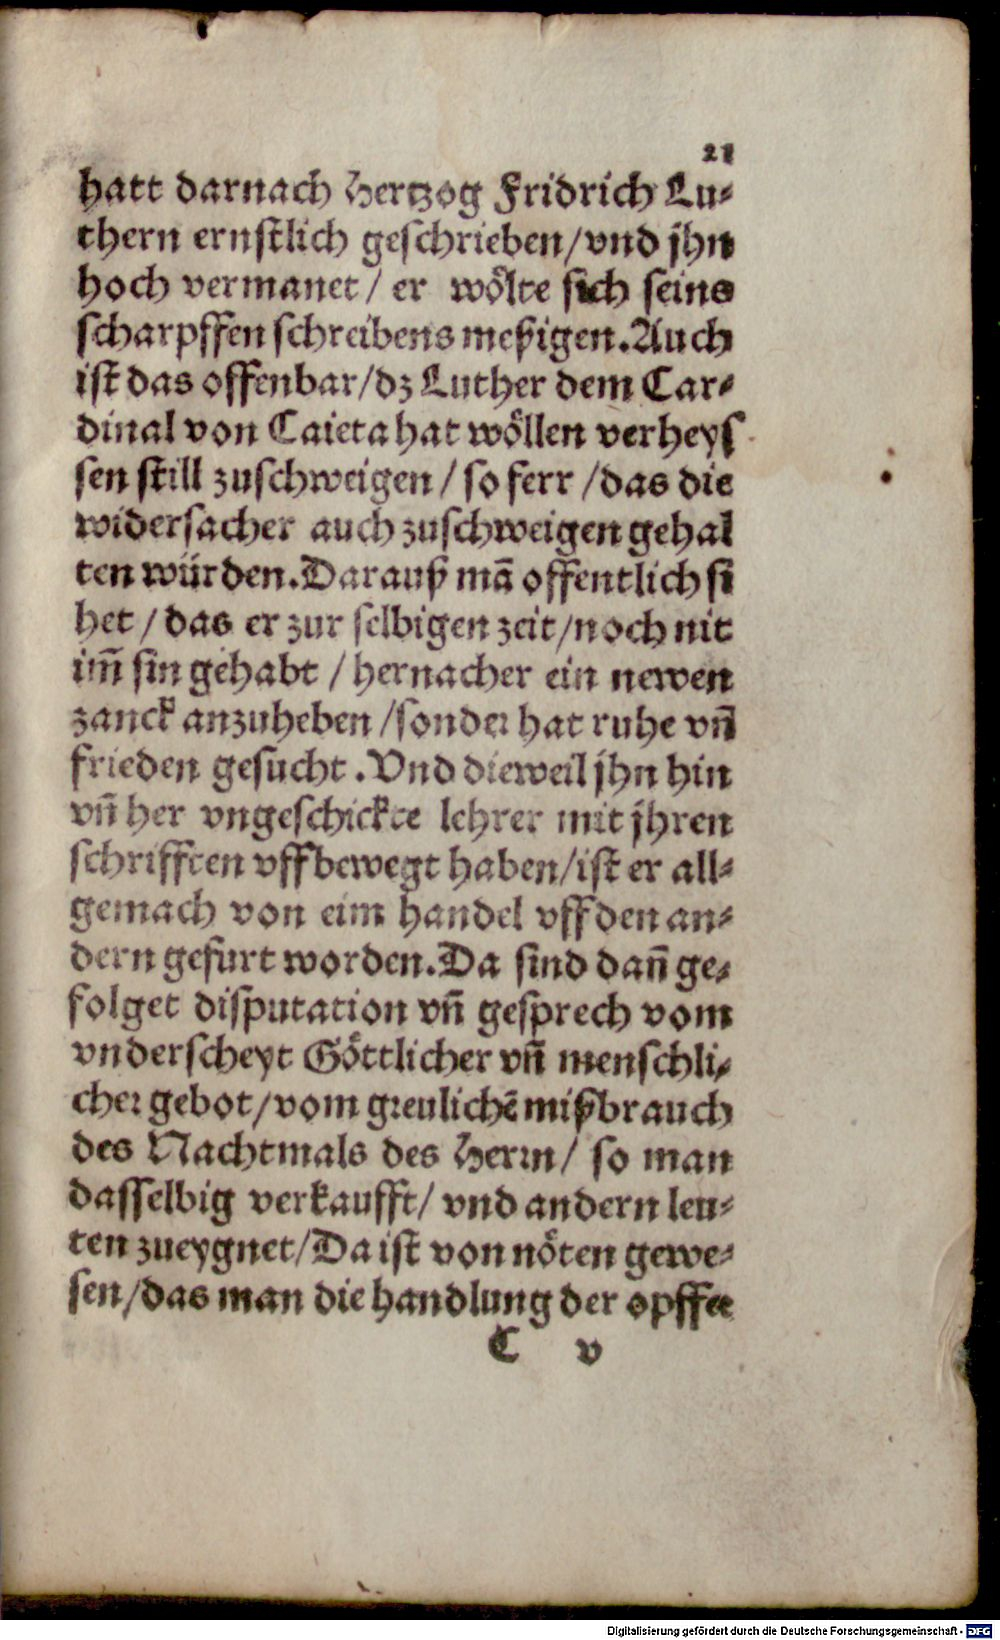 21
hatt darnach Hertzog Fridrich Lu-
thern ernstlich geschrieben/vnd jhn
hoch vermanet/ er wölte sich seins
scharpffen schreibens meßigen.Auch
ist das offenbar/dz Luther dem Car-
dinal von Caieta hat wöllen verheys
sen still zuschweigen/ so ferr/das die
widersacher auch zuschweigen gehal
ten würden.Darauß mā offentlich si
het/ das er zur selbigen zeit/noch nit
im̄ sin gehabt/ hernacher ein newen
zanck anzuheben/sonder hat ruhe vn̄
frieden gesucht.Vnd dieweil jhn hin
vn̄ her vngeschickte lehrer mit jhren
schrifften vffbewegt haben/ist er all-
gemach von eim handel vff den an-
dern gefurt worden.Da sind dan̄ ge-
folget disputation vn̄ gesprech vom
vnderscheyt Göttlicher vn̄ menschli-
cher gebot/vom greulichē mißbrauch
des Nachtmals des Herrn/ so man
dasselbig verkaufft/ vnd andern leu-
ten zueygnet/Da ist von nöten gewe-
sen/das man die handlung der opffer
C v
Digitalisierung gefördert durch die Deutsche Forschungsgemeinschaft - DFG